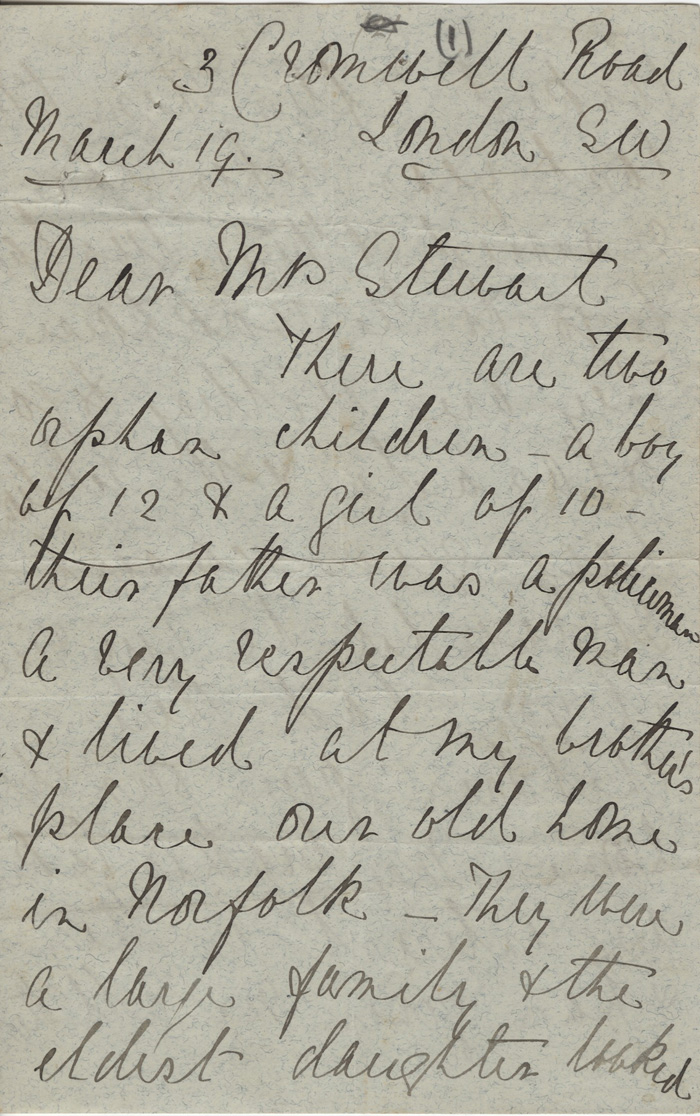 (1)
3 Cromwell Road
March 19. London SW
Dear Mrs Stewart
There are two
orphan children - a boy
of 12 & a girl of 10 -
their father was a policeman
a very respectable man
& lived at my brother's
place our old home
in Norfolk - They were
a large family & the
eldest daughter looked